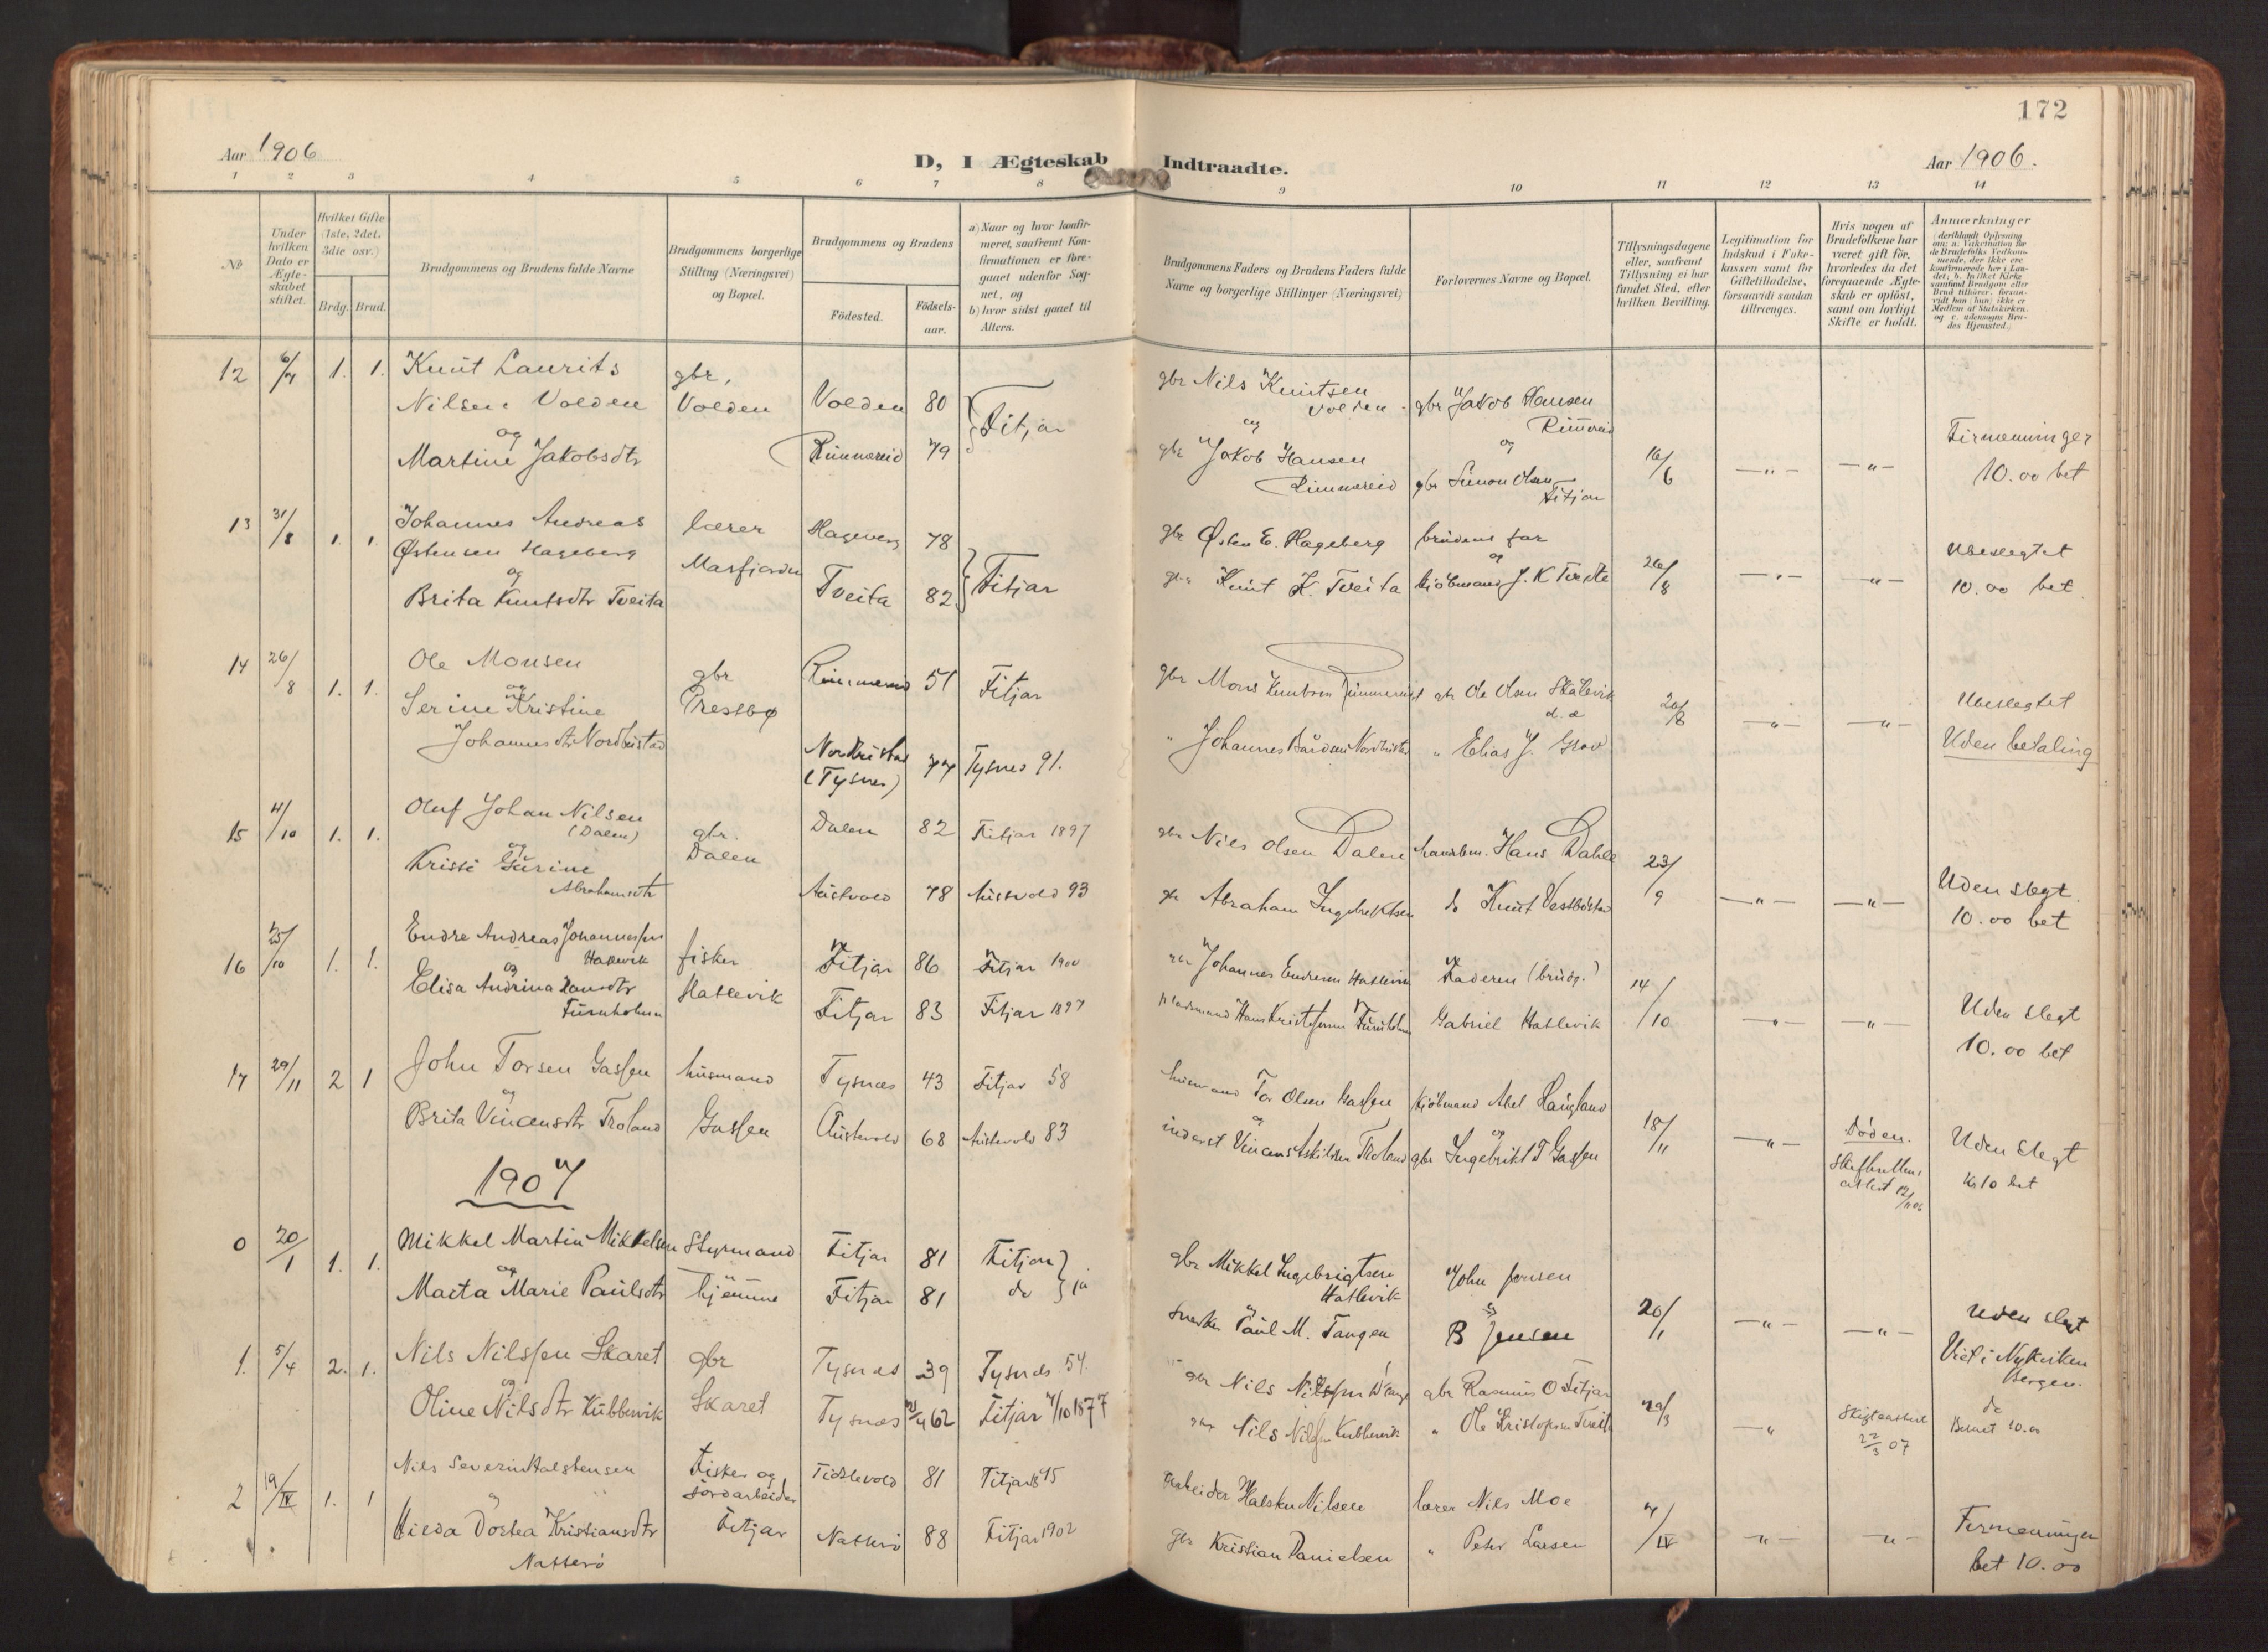 172
Aar 1906
D, I Ægteskab Indtraadte.
Aar 1906.
1 2 3 4 5 6 7 8 9 10 11 12 13 14
No
Under hvilken Dato er Ægteskabet stiftet.
Hvilket Gifte (1ste, 2det, 3die osv.)
Brdg. Brud.
Brudgommens og Brudens fulde Navne
Brudgommens borgerlige Stilling (Næringsvei) og Bopæl.
Brudgommens og Brudens
Födested.
Födselsaar.
a) Naar og hvor konfirmeret, saafremt Konfirmationen er foregaaet udenfor Sognet, og
b) hvor sidst gaaet til Alters.
Brudgommens Faders og Brudens Faders fulde Navne og borgerlige Stillinger (Næringsvei)
Forlovernes Navne og Bopæl.
Tillysningsdagene eller, saafremt Tillysning ei har fundet Sted, efter hvilken Bevilling.
Legitimation for Indskud i Fakekassen samt for Giftetilladelse, forsaavidt saadan tiltrænges.
Hvis nogen af Brudefolkene har været gift för, hvorledes da det foregaaende Ægteskab er oplöst, samt om lovligt Skifte er holdt.
Anmærkninger
12 6/7 1. 1. Knut Laurits
Nilsen Volden
og
Martine Jakobsdtr
gbr,
Volden
Volden 80
Rimmereid 79
Fitjar
gbr Nils Knutsen
Volden
og
gbr Jakob Hansen
Rimmereid
gbr Jakob Hansen
og
gbr Simon Olsen
Fitjar
16/6
Firmenninger
10.00 bet
13 31/8 1. 1. Johannes Andreas
Østensen Hageberg
og
Brita Knutsdtr Tveita
lærer
Masfjorden
Hageberg 78
Tveita 82
Fitjar
gbr Østen E. Hageberg
gbr Knut K. Tveita
brudens far
og
kjöbmand J. K Tveite
26/8
Ubeslegtet
10.00 bet.
14 26/8 1. 1. Ole Monsen
og
Serine Kristine
Johannesdtr Nordhustad
gbr
Presbø
Rimmereid 51 Fitjar
(Tysnes) 77 Tysnes 91.
gbr Mons Knutsen Rimmereid
" Johannes
gbr Ole Olsen Skålevik
" Elias J. Grov
Ubeslegtet
Uden betaling
15 4/10 1. 1. Oluf Johan Nilsen
(Dalen)
og
Abrahamsdtr
gbr.
Dalen
Dalen 82 Fitjar 1897
Austvold 78 Austvold 93
gbr Nils Olsen Dalen
gbr Abraham Ingebrektsen
Hans Dahle
do Knut Vestbøstad
23/9
Uden slegt.
10.00 bet
16 25/10 1. 1. Endre Andreas Johannessen
Hatlevik
og
Elisa Andrina Hansdtr
fisker
Hatlevik
Fitjar 86 Fitjar 1900
Fitjar 83 Fitjar 1897
gbr Johannes Endresen Hatlevik
Faderen (brudg.)
Gabriel Hatlevik
14/10
Uden slegt
10.00 bet
17 29/11 2 1 John Torsen Gassen
og
Brita Vincensdtr Troland
husmand
Gassen
Tysnæs 43 Fitjar 58
Austevold 68 Austevold 83
husmand Tor Olsen Gassen
og
inderst Vincens Askildsen Troland
Kjöbmand Abel Haugland
og
gbr Ingebrikt T Gassen
18/11
Døden.
Uden slegt
Kr 10 bet
1907
0 20/1 1. 1. Mikkel Martin Mikkelsen
og
Marta Marie Paulsdtr
Styrmand
hjemme
Fitjar 81 Fitjar
Fitjar 81 do
ja
gbr Mikkel Ingebrigtsen
Hatlevik
og
snekker Paul M. Tangen
John Jensen
B Jensen
20/1
Uden slegt
Viet i Nykirken
Bergen.
1. 5/4 2. 1. Nils Nilssen Skaret
og
Oline Nilsdtr Kubbervik
gbr
Skaret
Tysnæs 39 Tysnæs 54.
Tysnæs 62 Fitjar 7/10 1877
gbr Nils Nilssen
gbr Nils Nilssen Kubbervik
gbr Rasmus O Fitjar
" Ole Kristofersen Tveit
Skifteattest
22/3 07
do
Betalt 10.00
2 19/IV 1. 1 Nils Severin Halstensen
og
Hilda Dortea Kristiansdtr
Natterö
Fisker og
jordarbeider
Fitjar
81 Fitjar 95
Natterö 88 Fitjar 1902
arbeider Halsten Nilsen
gbr Kristian Danielsen
lærer Nils Moe
" Peter Larsen
7/IV
Firmenninger
bet 10.00